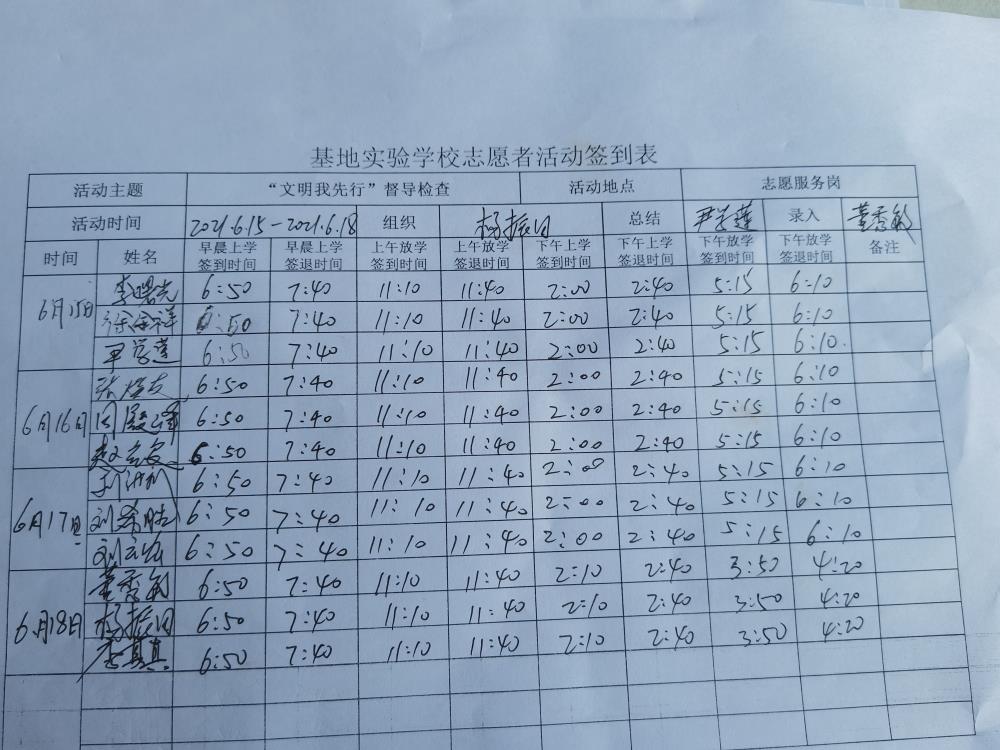 基地实验学校志愿者活动签到表
活动主题 “文明我先行”督导检查 活动地点 志愿服务岗
活动时间 2021.6.15-2021.6.18 组织 杨振国 总结 尹学莲 录入 董秀敏
时间 姓名 早晨上学签到时间 早晨上学签退时间 上午放学签到时间 上午放学签退时间 下午上学签到时间 下午上学签退时间 下午放学签到时间 下午放学签退时间 备注
6月15日 李曙光 6:50 7:40 11:10 11:40 2:00 2:40 5:15 6:10
徐金祥 6:50 7:40 11:10 11:40 2:00 2:40 5:15 6:10
尹学莲 6:50 7:40 11:10 11:40 2:00 2:40 5:15 6:10.
6月16日 6:50 7:40 11:10 11:40 2:00 2:40 5:15 6:10
6:50 7:40 11:10 11:40 2:00 2:40 5:15 6:10
6:50 7:40 11:10 11:40 2:00 2:40 5:15 6:10
6月17日 6:50 7:40 11:10 11:40 2:00 2:40 5:15 6:10
刘希胜 6:50 7:40 11:10 11:40 2:00 2:40 5:15 6:10
6:50 7:40 11:10 11:40 2:00 2:40 5:15 6:10
6月18日 董秀敏 6:50 7:40 11:10 11:40 2:10 2:40 3:50 4:20
杨振国 6:50 7:40 11:10 11:40 2:10 2:40 3:50 4:20
李真真 6:50 7:40 11:10 11:40 2:10 2:40 3:50 4:20